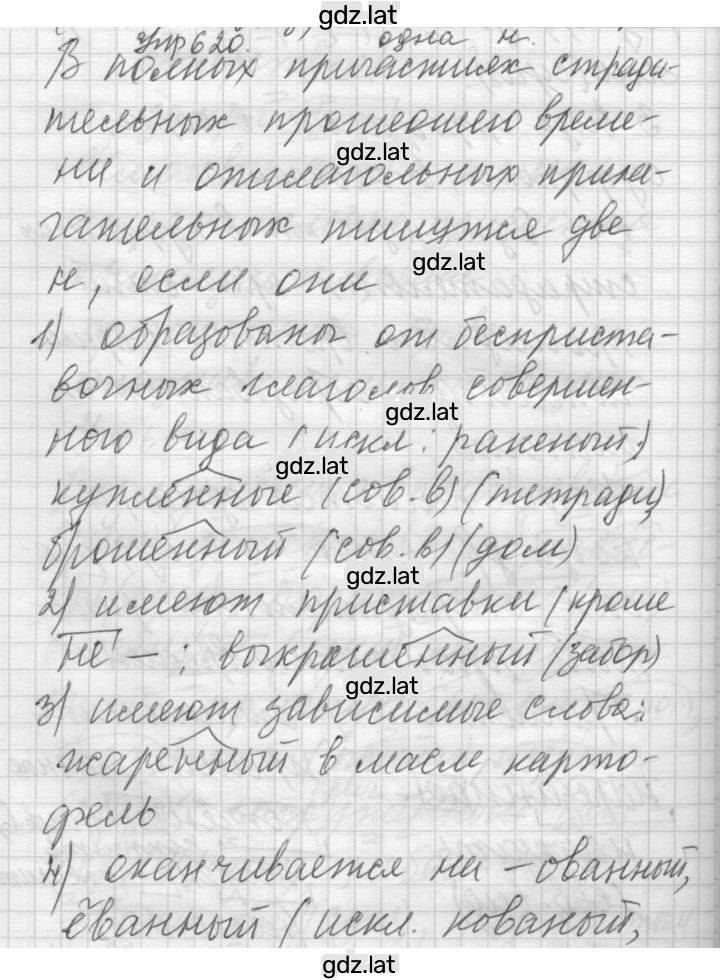 gdz.lat
Упр 620. одна н.
В полных причастиях страда-
тельных прошедшего време-
gdz.lat
ни и отглагольных прила-
гательных пишутся две
gdz.lat
н, если они
1) образованы от бесприста-
вочных глаголов совершен-
gdz.lat
ного вида (искл.: раненый.)
gdz.lat
купленные (сов.в) (тетради)
брошенный (сов.в) (дом)
gdz.lat
2) имеют приставки (кроме
не-: выкрашенный (забор)
gdz.lat
3) имеют зависимые слова:
жаренный в масле карто-
фель
4) оканчивается на -ованный,
ёванный (искл. кованый,
gdz.lat